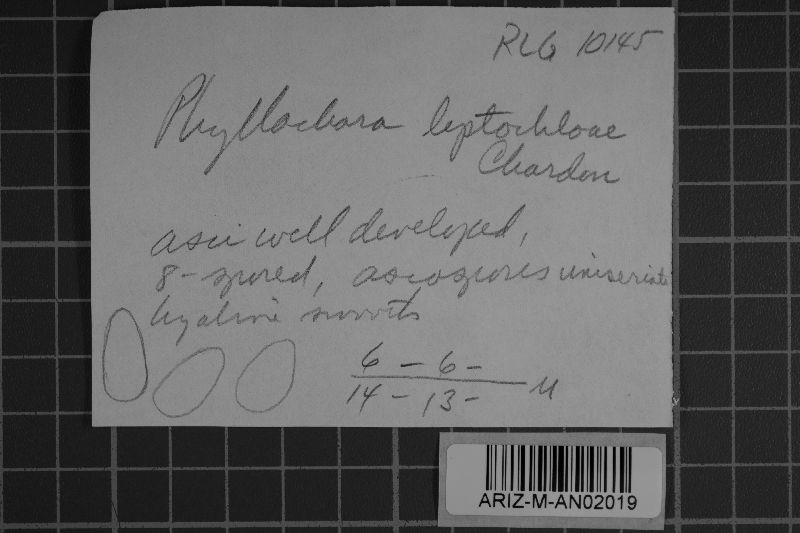 RLG 10145
Phyllachora leptochloae
Chardon
asci well developed,
8-spored, ascospores uniseriate
hyaline smooth
6 – 6 –
14 – 13 – u
ARIZ-M-AN02019